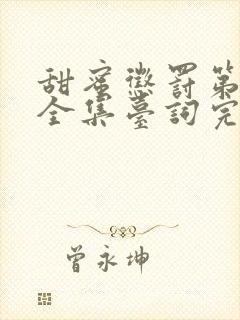 甜蜜懲罰第
全集臺詞完
曾永坤